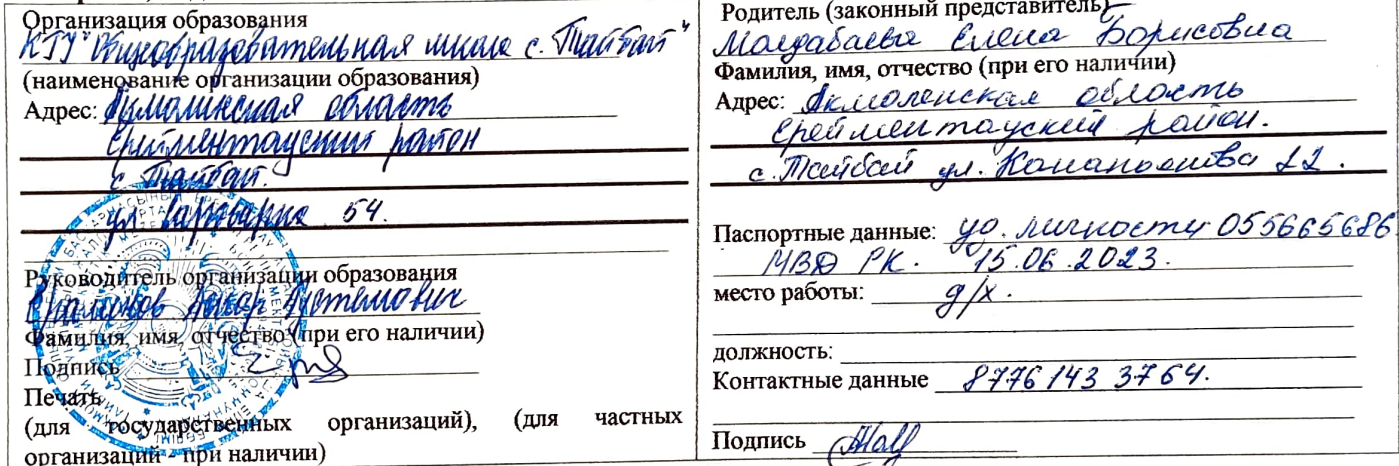 Организация образования
КГУ "Общеобразовательная школа с. Тайбай"
(наименование организации образования)
Адрес: Акмолинская область
Ерейментауский район
с. Тайбай.
ул. 54.
Руководитель организации образования
Фамилия, имя, отчество (при его наличии)
Подпись
Печать
(для государственных организаций), (для частных
организаций - при наличии)
Родитель (законный представитель)
Молдабаева Елена Борисовна
Фамилия, имя, отчество (при его наличии)
Адрес: Акмоленская область
Ерейментауский район.
с. Тайбай ул. 22.
Паспортные данные: уд. личности 055665686
МВД РК. 15.06.2023.
место работы: д/х.
должность:
Контактные данные 8776 143 3764.
Подпись